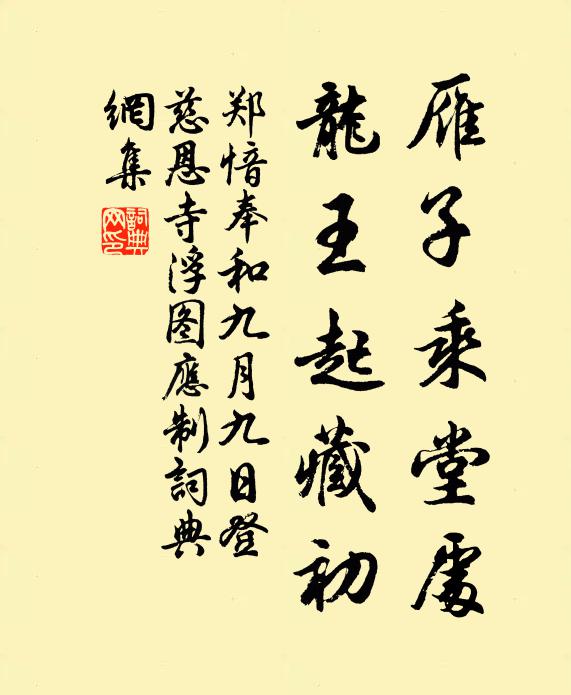 雁子乘堂處
龍王起藏初
郑愔奉和九月九日登
慈恩寺浮图應制詞典
網集
詞典网印